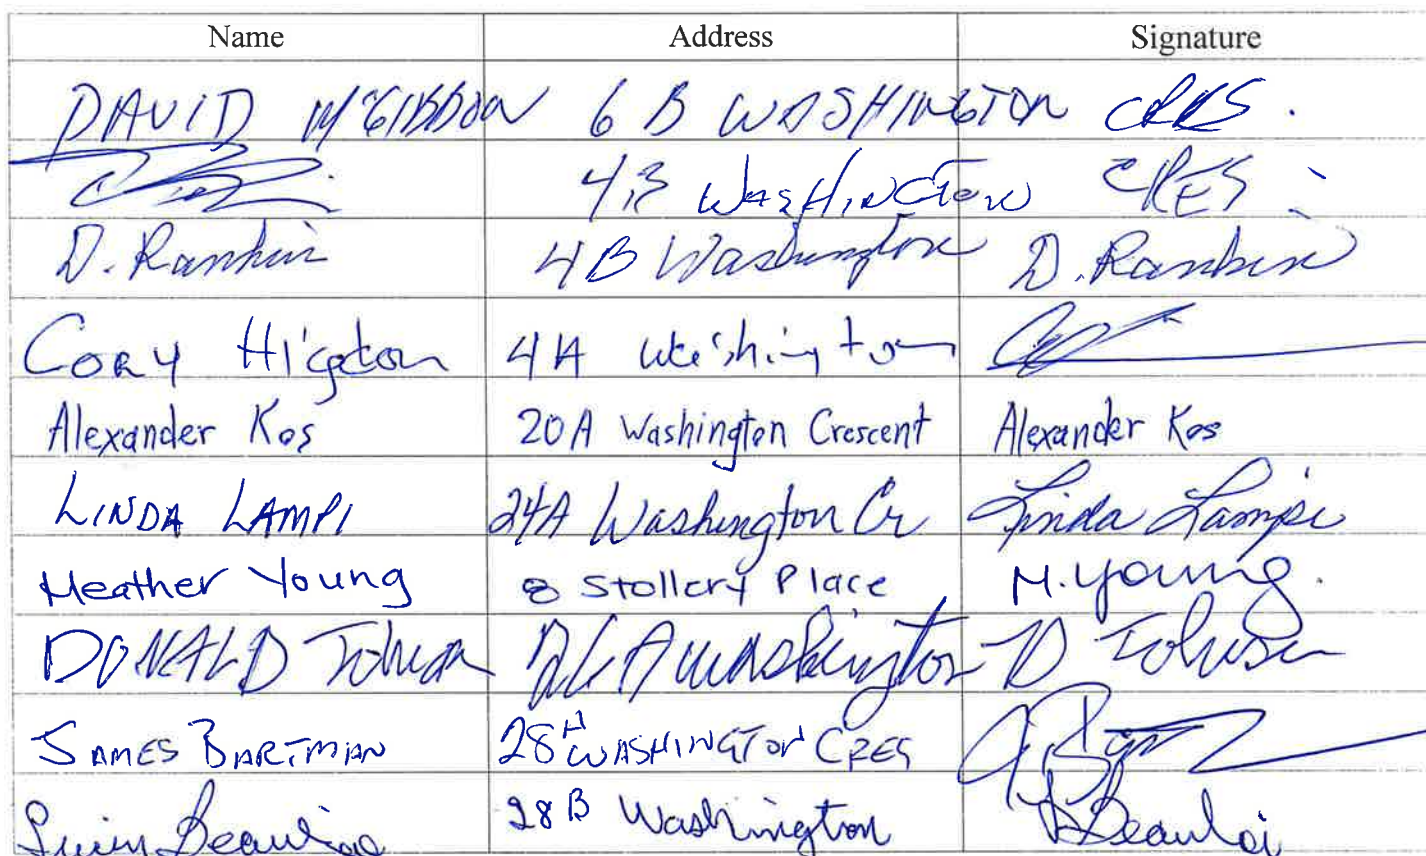 Name Address Signature
DAVID McGIBBON 6 B WASHINGTON CRES.
4B WASHINGTON CRES
D. Rankin 4B Washington D. Rankin
Cory Higdon 4A Washington
Alexander Kos 20A Washington Crescent Alexander Kos
LINDA LAMPI 24A Washington Cr Linda Lampi
Heather Young 8 Stollery Place H. Young.
DONALD A Washington D
JAMES BARTMAN 28A WASHINGTON CRES
28 B Washington